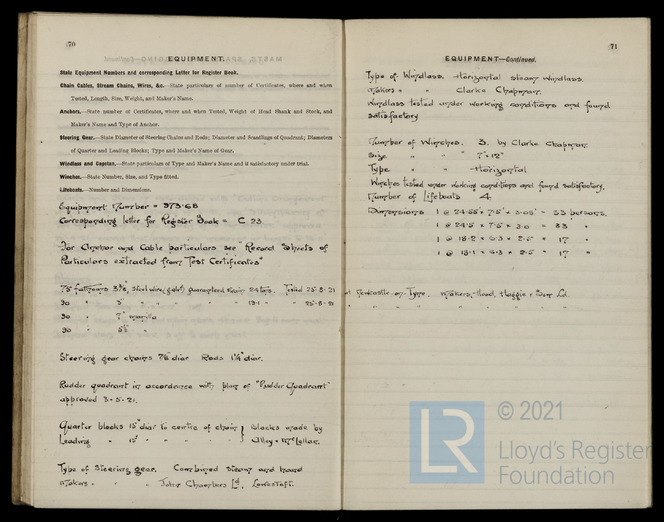 70
EQUIPMENT.
State Equipment Numbers and corresponding Letter for Register Book.
Chain Cables, Stream Chains, Wires, &c.—State particulars of number of Certificates, where and when
Tested, Length, Size, Weight, and Maker's Name.
Anchors.—State number of Certificates, where and when Tested, Weight of Head Shank and Stock, and
Maker's Name and Type of Anchor.
Steering Gear.—State Diameter of Steering Chains and Rods; Diameter and Scantlings of Quadrant; Diameters
of Quarter and Leading Blocks; Type and Maker's Name of Gear.
Windlass and Capstan.—State particulars of Type and Maker's Name and if satisfactory under trial.
Winches.—State Number, Size, and Type fitted.
Lifeboats.—Number and Dimensions.
Equipment Number = 373.68
Corresponding letter for Register Book = C 23
For Anchor and Cable particulars see "Record Sheets of
Particulars extracted from Test Certificates"
75 fathoms 3⅜, steel wire, guaranteed 24 tons. Tested 25-8-21
90 " 3" " " " " 19.1 " 25-8-21
90 " 7" manilla
90 "
Steering gear chains 7/8 diar Rods 1¼" diar.
Rudder quadrant in accordance with plan of "Rudder Quadrant"
approved 3-5-21.
Quarter blocks 15" diar to centre of chain } Blocks made by
Leading " 15" " " " } Alley & McLellan.
Type of Steering gear. Combined steam and hand
Makers " " John Chambers Ld, Lowestoft.
71
EQUIPMENT—Continued.
Type of Windlass. Horizontal steam windlass.
Makers " " Clarke Chapman.
Windlass tested under working conditions and found
satisfactory
Number of Winches. 3. by Clarke Chapman.
Size " " 7" × 12"
Type " " Horizontal
Winches tested under working conditions and found satisfactory.
Number of lifeboats 4
Dimensions 1 @ 24.55 × 7.5 × 3.05 = 33 persons.
1 @ 24.5 × 7.5 × 3.0 = 33 "
1 @ 18.2 × 6.3 × 2.5 = 17 "
1 @ 18.1 × 6.3 × 2.5 = 17 "
at Newcastle-on-Tyne. Makers, Hood, Haggie & Son Ld.
" " " " " " "
LR
© 2021
Lloyd's Register
Foundation